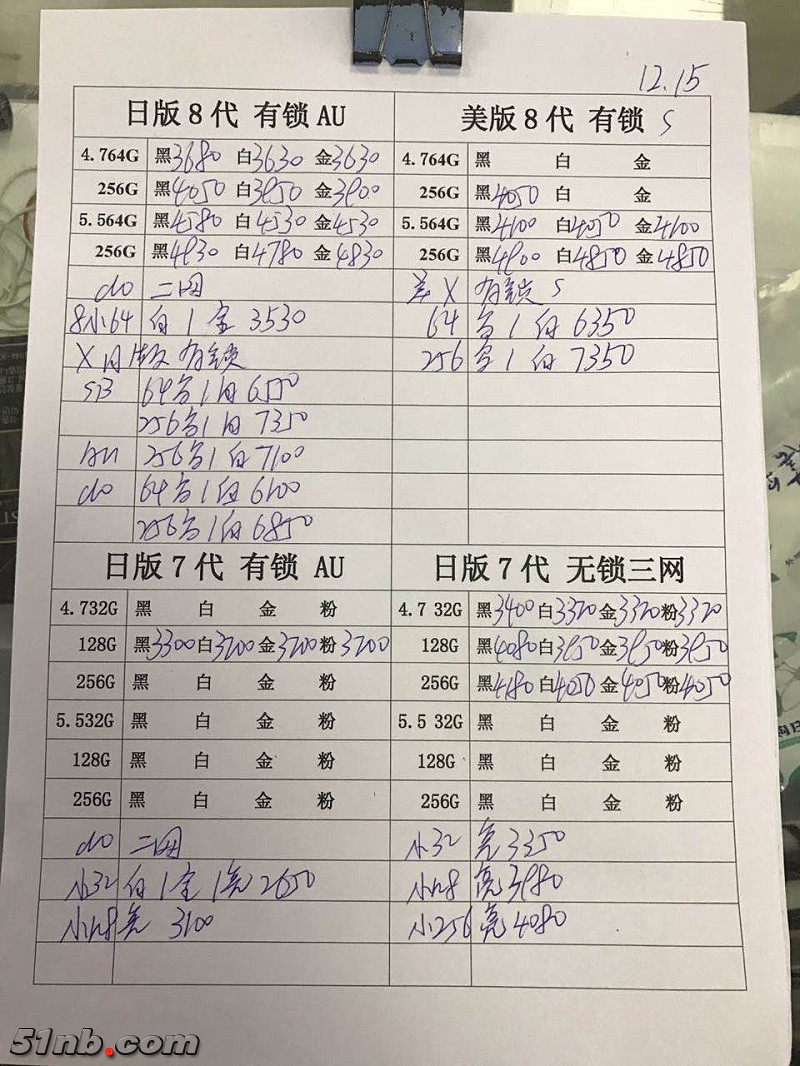 12.15
日版8代 有锁AU
4.764G 黑3680 白3630 金3630
256G 黑4050 白3950 金3900
5.564G 黑4580 白4530 金4530
256G 黑4930 白4780 金4830
do 二网
8小64 白1金 3530
X日版 有锁
SB 64 1白 6550
256 1白 7350
AU 256 1白 7100
do 64 1白 6100
256 1白 6850
美版8代 有锁 S
4.764G 黑 白 金
256G 黑4050 白 金
5.564G 黑4100 白4050 金4100
256G 黑4900 白4850 金4850
美X 有锁 S
64 1白 6350
256 1白 7350
日版7代 有锁 AU
4.732G 黑 白 金 粉
128G 黑3300 白3200 金3200 粉3200
256G 黑 白 金 粉
5.532G 黑 白 金 粉
128G 黑 白 金 粉
256G 黑 白 金 粉
do 二网
小32 白1金1亮 2650
小128 亮 3100
日版7代 无锁三网
4.7 32G 黑3400 白3320 金3320 粉3320
128G 黑4080 白3950 金3950 粉3950
256G 黑4180 白4050 金4050 粉4050
5.5 32G 黑 白 金 粉
128G 黑 白 金 粉
256G 黑 白 金 粉
小32 亮 3350
小128 亮 3980
小256 亮 4080
51nb.com